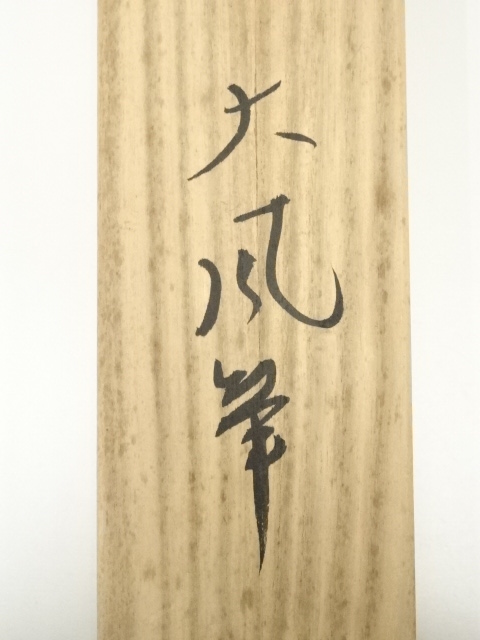 大風筆